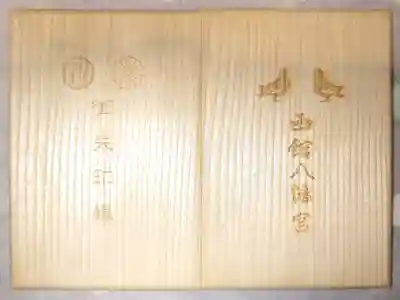 函館八幡宮
御朱印帳